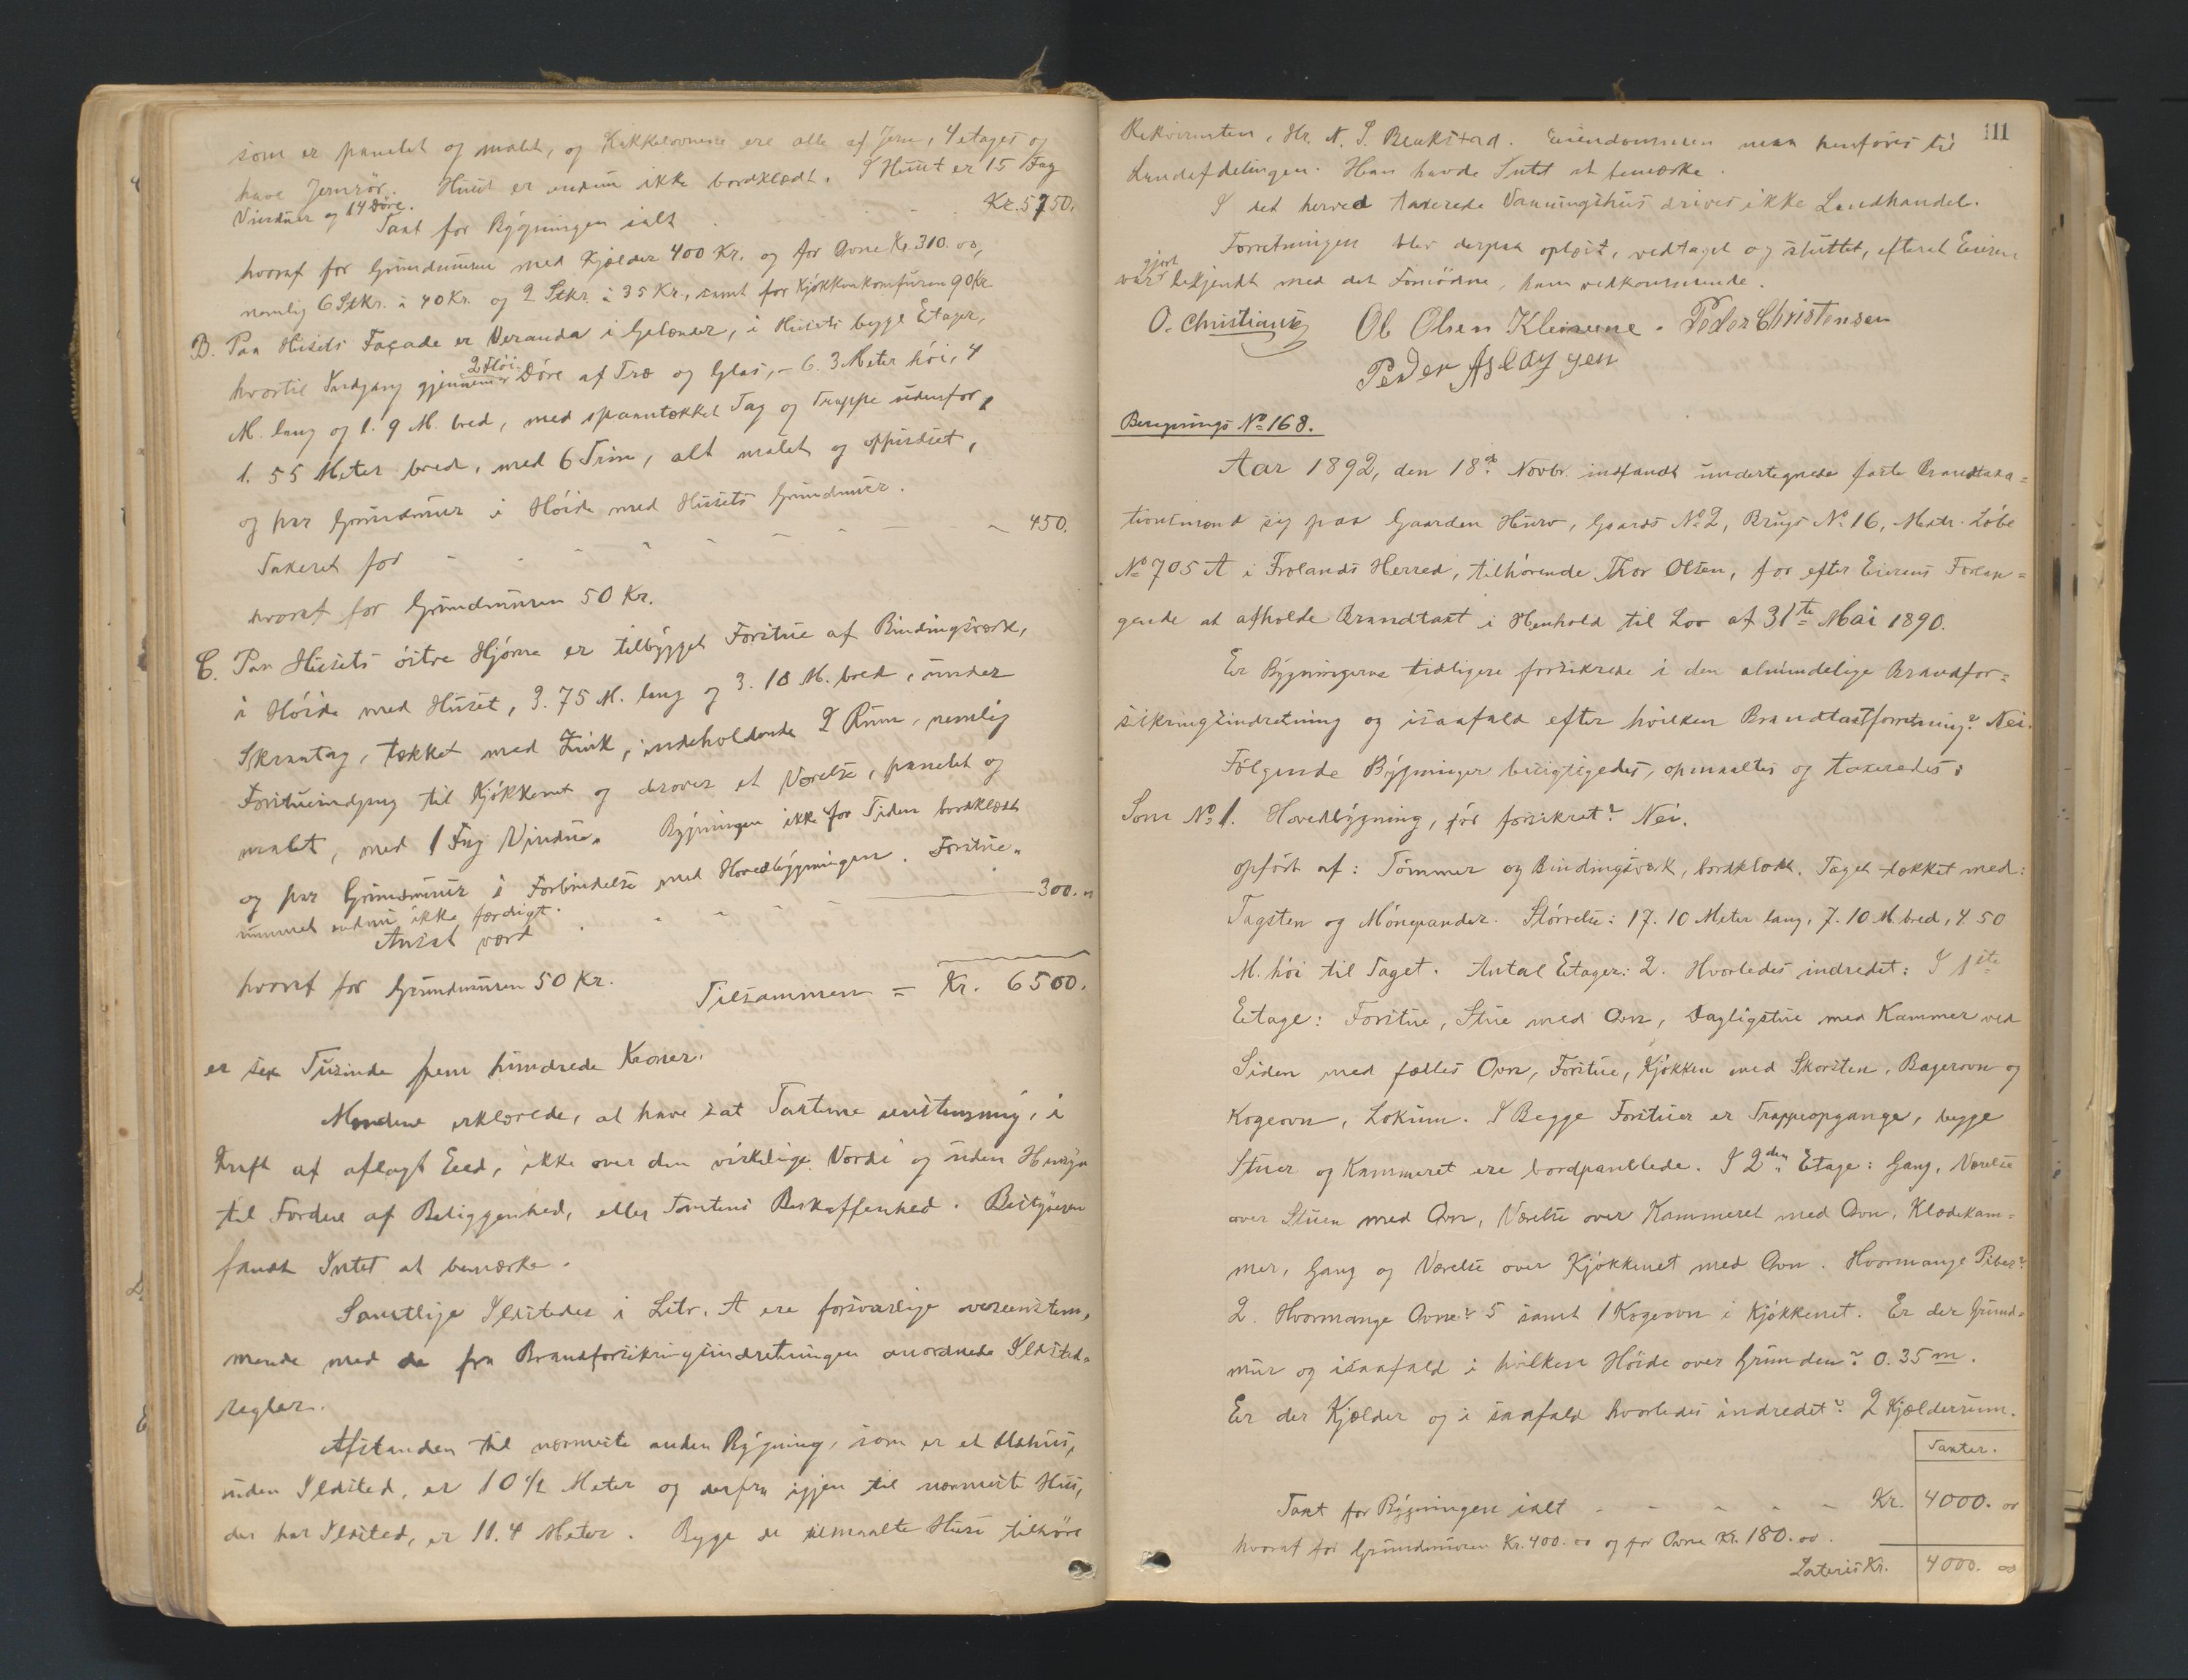 som er panelet og malet, og Kakkelovnene ere alle af Jern, 4 etages og
have Jernrör. Huset er endnu ikke bordklædt. I Huset er 15 Fag
Vinduer og 14 Döre.
Taxt for Bygningen ialt Kr. 5750.
hvoraf for Grundmuren med Kjælder 400 Kr. og for Ovne Kr. 310.00,
nemlig 6 Stkr. à 40 Kr. og 2 Stkr. à 35 Kr., samt for Kjøkkenkomfuren 90 Kr
B. Paa Husets Façade er Veranda i Gelænder, i Husets begge Etager,
hvortil Indgang gjennem 2 Flöi- Döre af Træ og Glas, - 6.3 Meter höi, 4
M. lang og 1.9 M. bred, med spaantækket Tag og Trappe udenfor,
1.55 Meter bred, med 6 Trin, alt malet og oppudset,
og paa Grundmur i Höide med Husets Grundmur.
Taxeret for 450.
hvoraf for Grundmuren 50 Kr.
C. Paa Husets östre Hjørne er tilbygget Forstue af Bindingsværk,
i Höide med Huset, 3.75 M. lang og 3.10 M. bred, under
Skraatag, tækket med Zink, indeholdende 2 Rum, nemlig
Forstueindgang til Kjøkkenet og derover et Værelse, panelet og
malet, med 1 Fag Vindue. Bygningen ikke for Tiden bordklædt
og paa Grundmur i Forbindelse med Hovedbygningen. Forstue-
rummet endnu ikke færdigt.
Anset værd 300.
hvoraf for Grundmuren 50 Kr. Tilsammen = Kr. 6500.
er sex Tusinde fem hundrede Kroner.
Mændene erklærede, at have sat Taxterne enstemmig, i
Kraft af aflagt Eed, ikke over den virkelige Værdi og uden Hensyn
til Fordele af Beliggenhed, eller Tomtens Beskaffenhed. Bestyreren
fandt Intet at bemærke.
Samtlige Ildsteder i Litr. A ere forsvarlige overeenstem-
mende med de fra Brandforsikringsindretningen anordnede Ildsteds-
regler.
Afstanden til nærmeste anden Bygning, som er et Udhus,
uden Ildsted, er 10 1/2 Meter og derfra igjen til nærmeste Hus,
der har Ildsted, er 11.4 Meter. Begge de Huse tilhøre
111
Rekvirenten, Hr. N. S. Beukstad. Eiendommen maa henføres til
Landafdelingen. Han havde Intet at bemærke.
I det herved taxerede Vaaningshus drives ikke Landhandel.
Forretningen blev derpaa oplæst, vedtaget og sluttet, efterat Eieren
var gjort bekjendt med det Fornödne, ham vedkommende.
O. Christiansen Ol Olsen Kleivene. Peder Christensen
Peder Aslaksen
Besigtnings No 168.
Aar 1892, den 18de Novbr. indfandt undertegnede faste Brandtaxa-
tionsmænd sig paa Gaarden Hurv, Gaards No 2, Brugs No 16, Matr. Løbe
No 705 A i Frolands Herred, tilhørende Thor Olsen, for efter Eierens Forlan-
gende at afholde Brandtaxt i Henhold til Lov af 31te Mai 1890.
Er Bygningerne tidligere forsikrede i den almindelige Brandfor-
sikringsindretning og isaafald efter hvilken Brandtaxtforretning? Nei.
Følgende Bygninger besigtigedes, opmaaltes og taxeredes:
Som No 1. Hovedbygning, før forsikret? Nei.
opført af: Tömmer og Bindingsværk, bordklædt. Taget tækket med:
Tagsten og Mönepander. Störrelse: 17.10 Meter lang, 7.10 M. bred, 4.50
M. höi til Taget. Antal Etager: 2. Hvorledes indredet: I 1ste
Etage: Forstue, Stue med Ovn, Dagligstue med Kammer ved
Siden med fælles Ovn, Forstue, Kjøkken med Skorsten, Bagerovn og
Kogeovn, Lokum. I Begge Forstuer er Trappeopgange, begge
Stuer og Kammeret ere bordpanelede. I 2den Etage: Gang, Værelse
over Stuen med Ovn, Værelse over Kammeret med Ovn, Klædekam-
mer, Gang og Værelse over Kjøkkenet med Ovn. Hvormange Piber?
2. Hvormange Ovne? 5 samt 1 Kogeovn i Kjøkkenet. Er der Grund-
mur og isaafald i hvilken Höide over Grunden? 0.35 m.
Er der Kjælder og i saafald hvorledes indredet? 2 Kjælderrum.
Taxter.
Taxt for Bygningen ialt Kr. 4000.00
hvoraf for Grundmuren Kr. 400.00 og for Ovne Kr. 180.00.
Lateris Kr. 4000.00